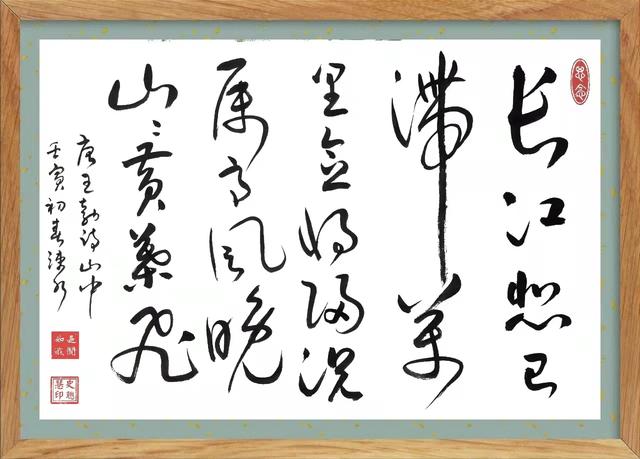 长江悲已
滞萬
里念将归况
属高风晚
山〻黄葉飞
唐王勃诗山中
壬寅初春